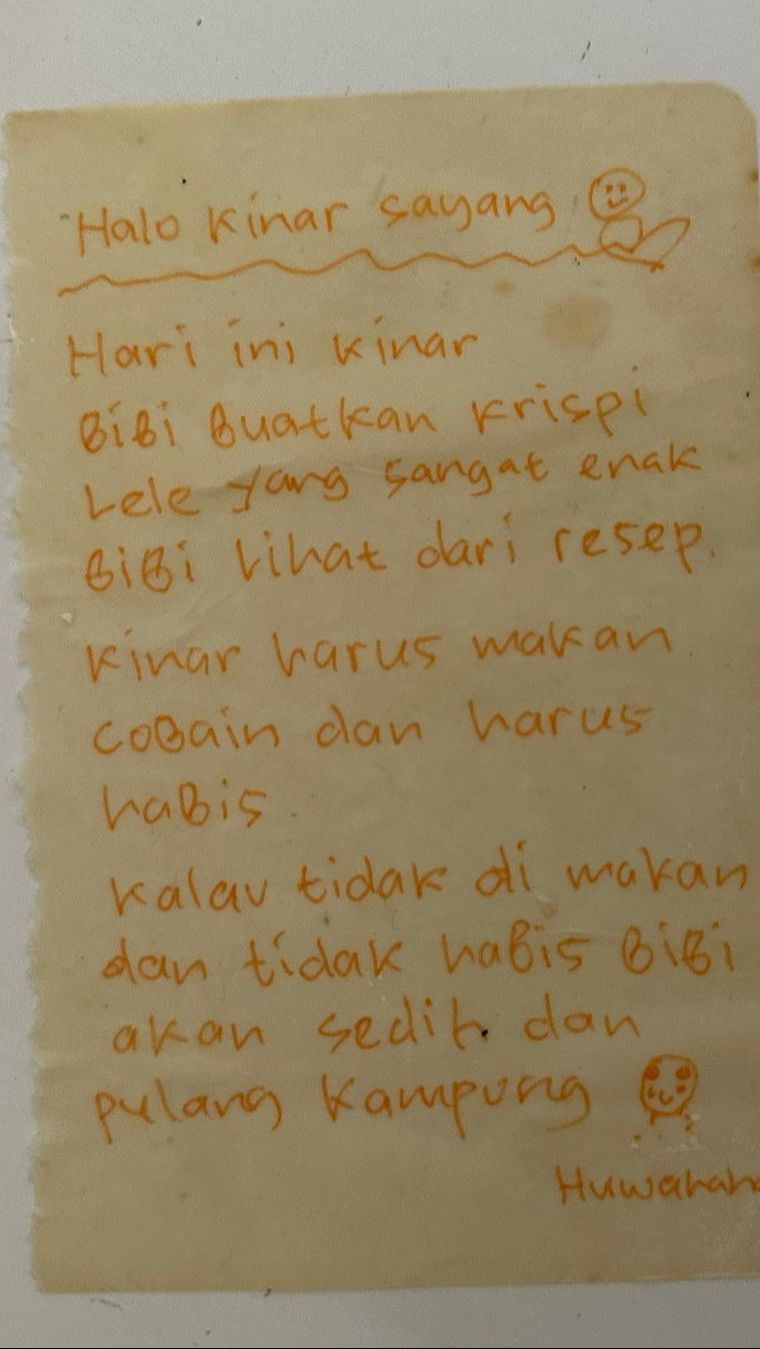 Halo Kinar sayang
Hari ini Kinar
Bibi Buatkan krispi
Lele yang sangat enak
BiBi lihat dari resep.
Kinar harus makan
coBain dan harus
haBis.
Kalau tidak di makan
dan tidak haBis BiBi
akan sedih dan
pulang kampung
Huwahaha